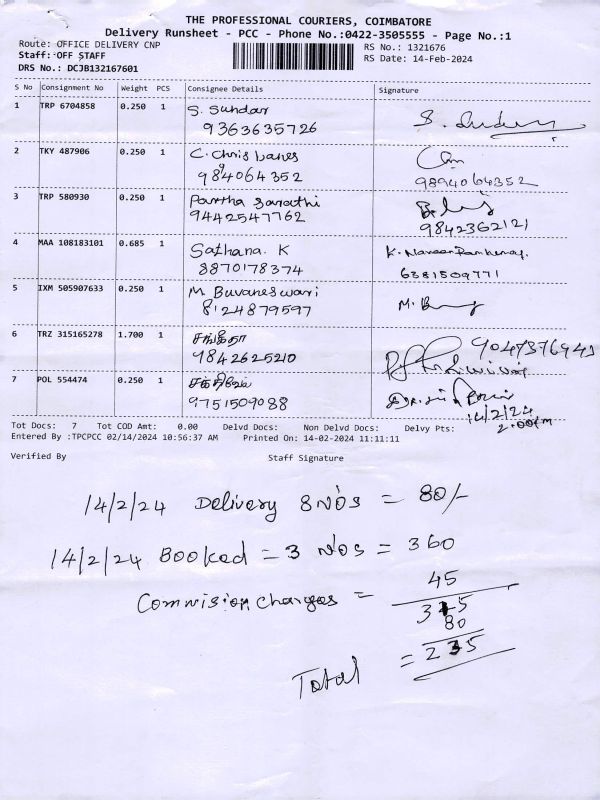 THE PROFESSIONAL COURIERS, COIMBATORE
Delivery Runsheet - PCC - Phone No.:0422-3505555 - Page No.:1
Route: OFFICE DELIVERY CNP
RS No.: 1321676
Staff: OFF STAFF
RS Date: 14-Feb-2024
DRS No.: DCJB132167601
S No Consignment No Weight PCS Consignee Details Signature
1 TRP 6704858 0.250 1 S. Sundar S. 
9363635726
2 TKY 487906 0.250 1 C. Chris
984064352 9894064352
3 TRP 580930 0.250 1 Partha Sarathi
9442547762 9842362121
4 MAA 108183101 0.685 1 Sathana. K
8870178374 6381509771
5 IXM 505907633 0.250 1 M Buvaneswari M.
8124879597
6 TRZ 315165278 1.700 1 9047376943
9842625210
7 POL 554474 0.250 1 சக்திவேல்
9751509088 14/2/24
2.00pm
Tot Docs: 7 Tot COD Amt: 0.00 Delvd Docs: Non Delvd Docs: Delvy Pts:
Entered By :TPCPCC 02/14/2024 10:56:37 AM Printed On: 14-02-2024 11:11:11
Verified By Staff Signature
14/2/24 Delivery 8 Nos = 80/-
14/2/24 Booked = 3 Nos = 360
Commision charges = 45
315
80
Total = 235